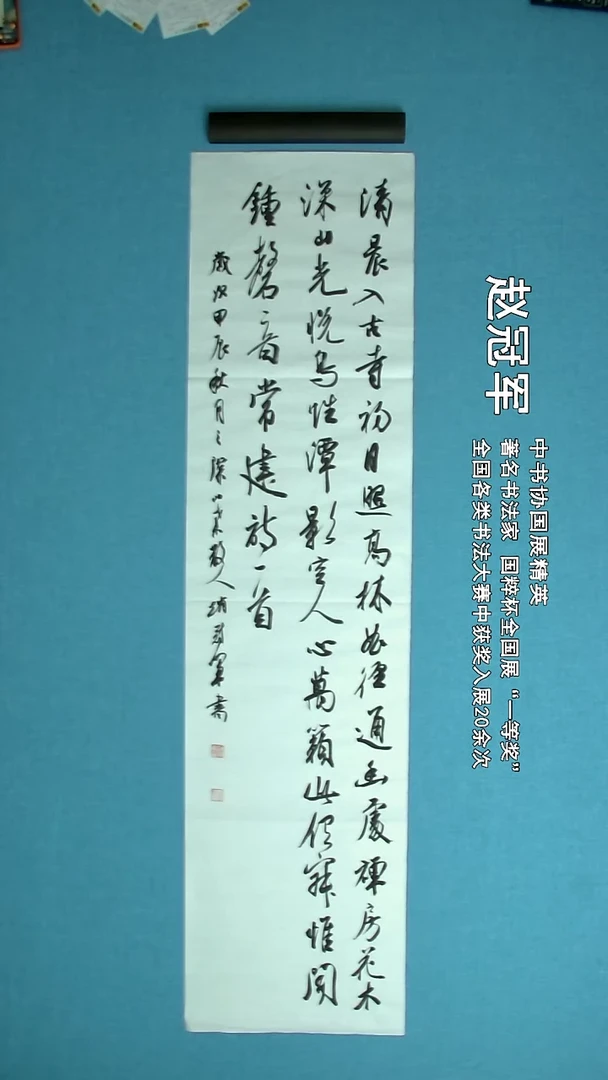 赵冠军
中书协国展精英
著名书法家 国粹杯全国展“一等奖”
全国各类书法大赛中获奖入展20余次
清晨入古寺初日照高林曲徑通幽處禪房花木
深山光悦鳥性潭影空人心萬籟此俱寂惟聞
鐘磬音常建詩一首
歲次甲辰秋月之際人趙冠軍書